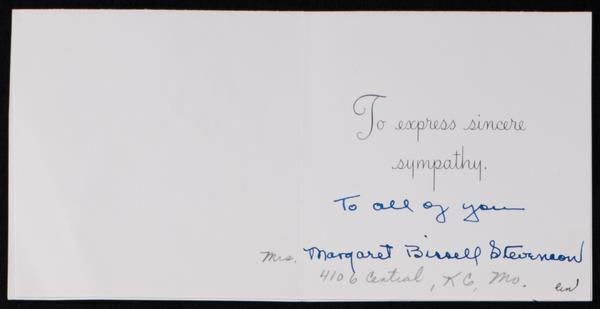 To express sincere
sympathy.
To all of you
Mrs. Margaret Bissell Stevenson
4106 Central, KC, Mo.